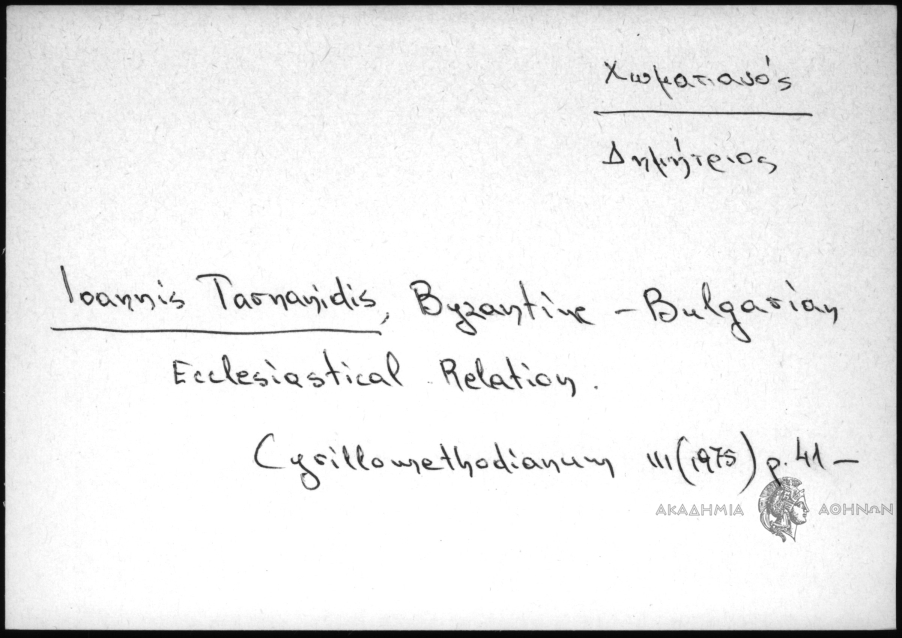 Χωματιανός
Δημήτριος
Ioannis Tarnanidis, Byzantine – Bulgarian
Ecclesiastical Relation.
Cyrillomethodianum III (1975) p. 41 –
ΑΚΑΔΗΜΙΑ ΑΘΗΝΩΝ